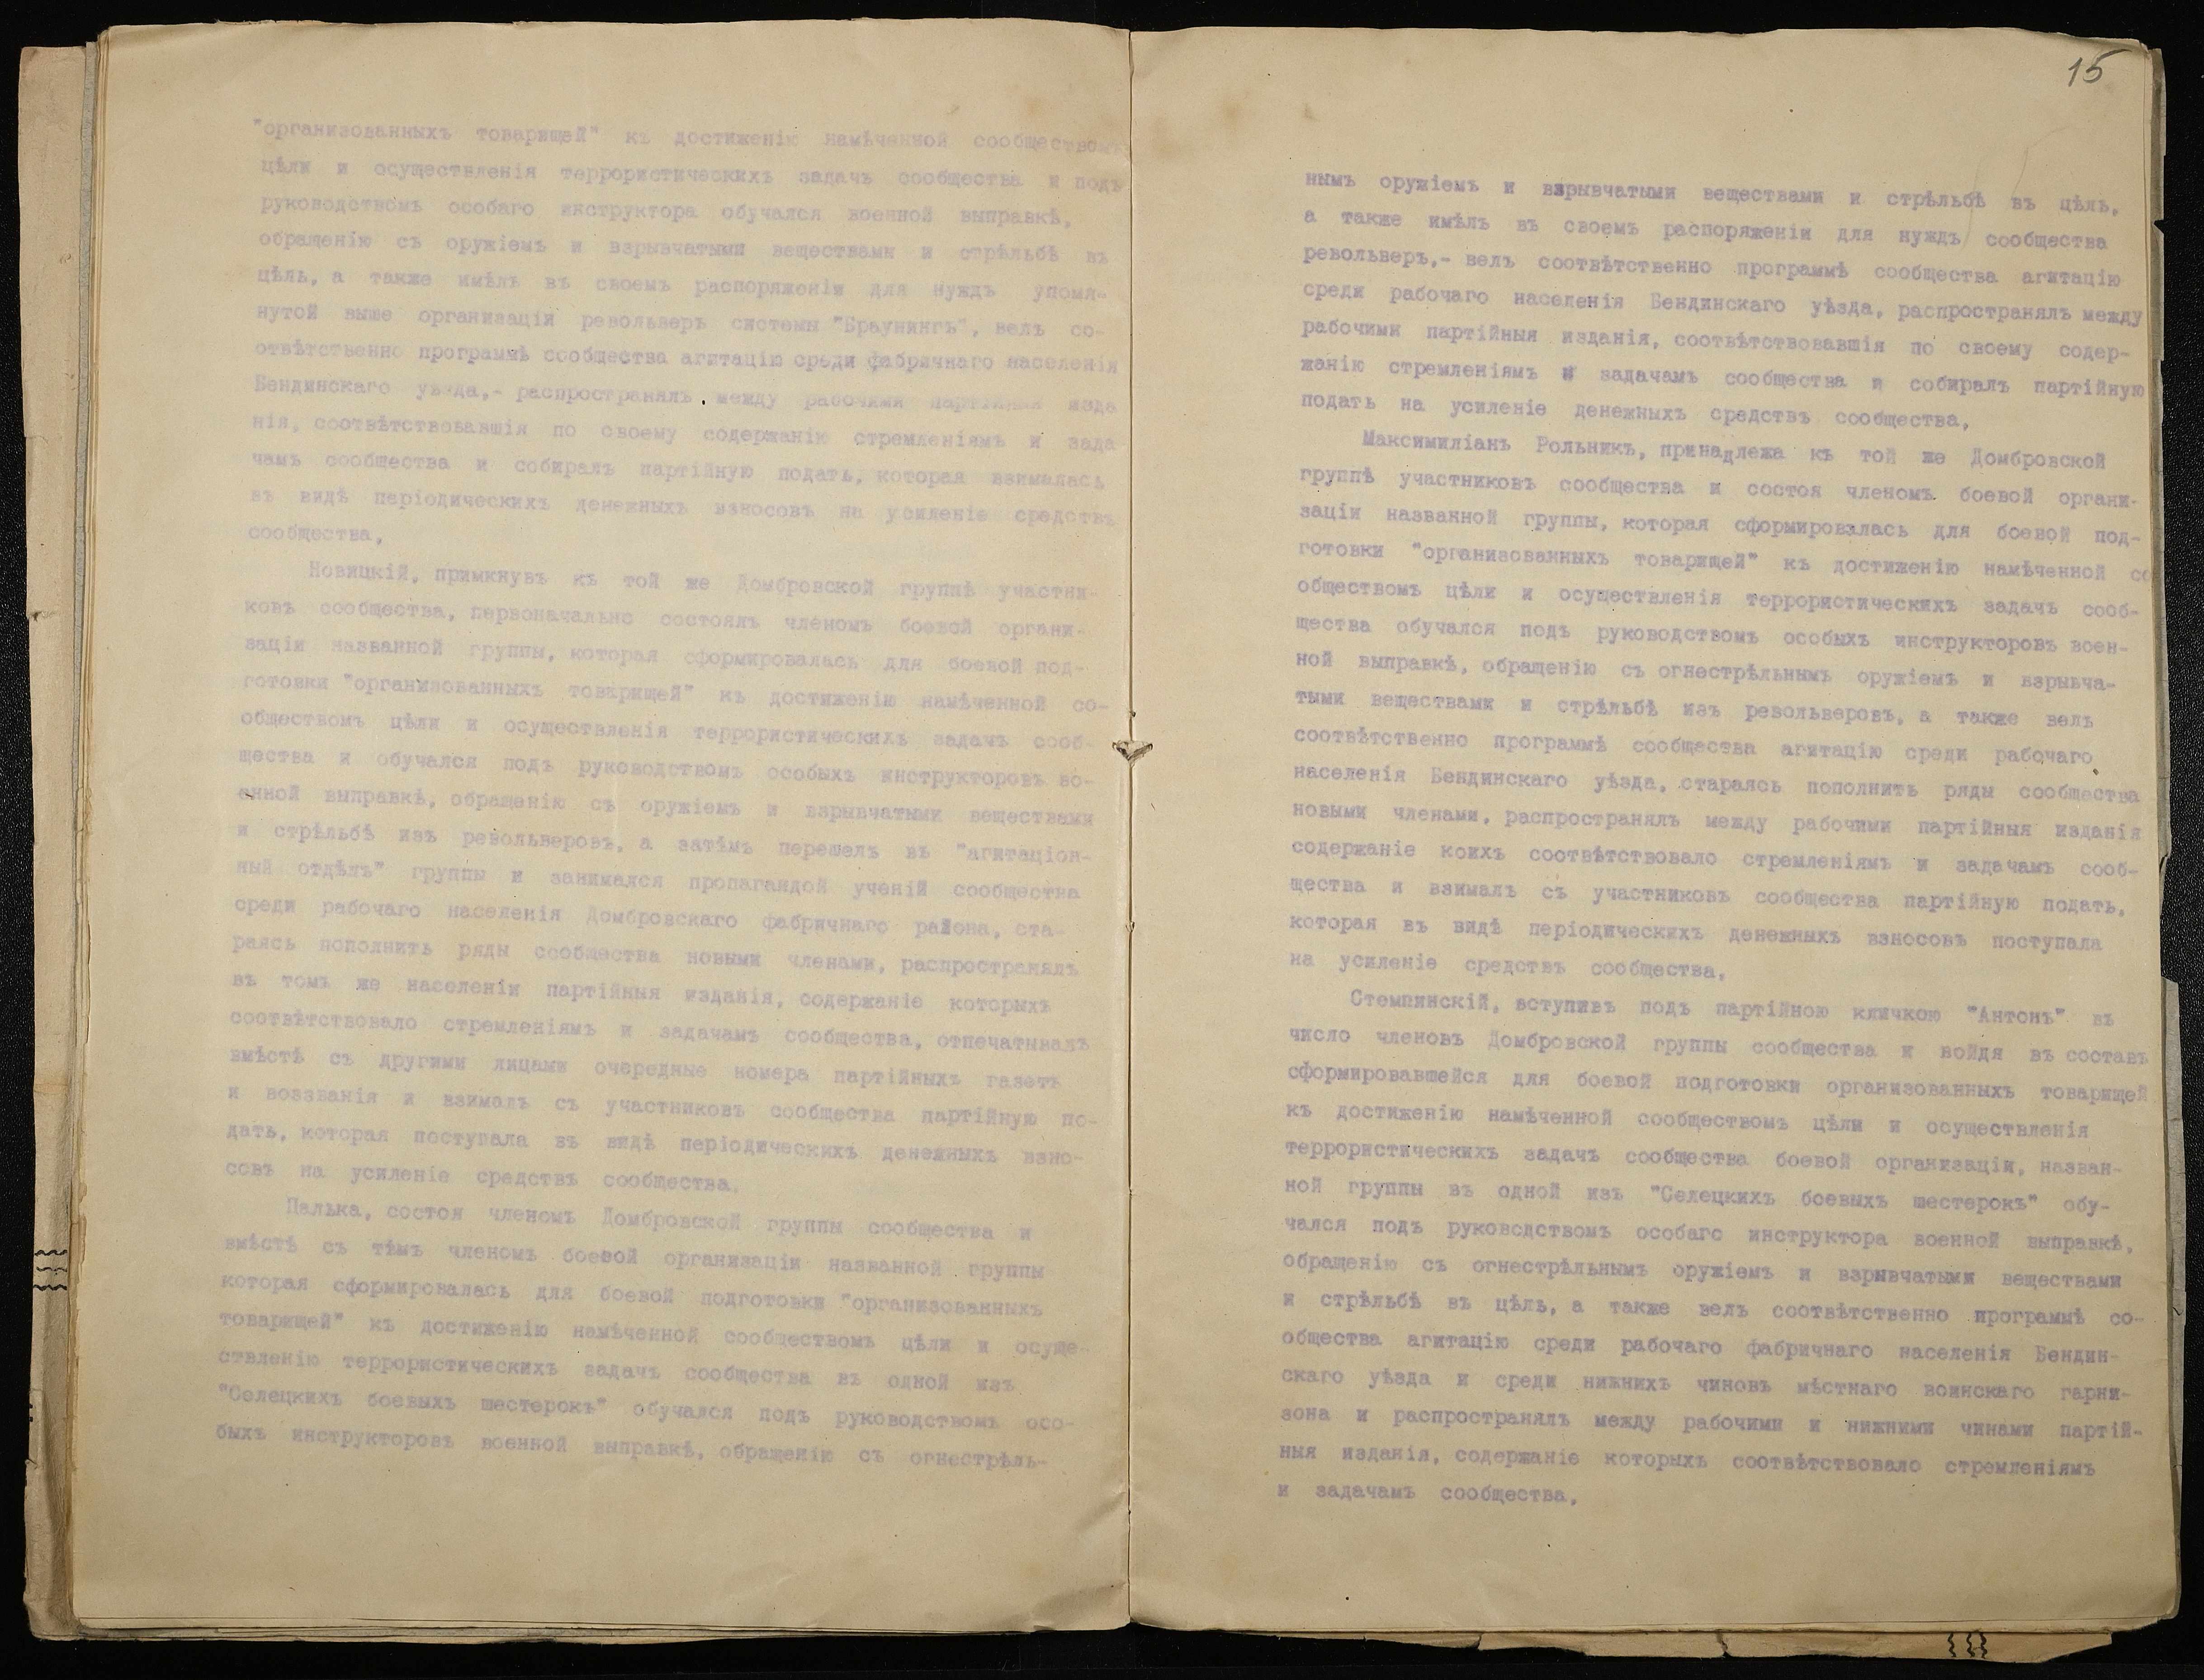 "организованныхъ товарищей" къ достиженію намѣченной сообществомъ
цѣли и осуществленія террористическихъ задачъ сообщества и подъ
руководствомъ особаго инструктора обучался военной выправкѣ,
обращенію съ оружіемъ и взрывчатыми веществами и стрѣльбѣ въ
цѣль, а также имѣлъ въ своемъ распоряженіи для нуждъ упомя-
нутой выше организаціи револьверъ системы "Браунингъ", велъ со-
отвѣтственно программѣ сообщества агитацію среди фабричнаго населенія
Бендинскаго уѣзда,- распространялъ между рабочими партійныя изда
нія, соотвѣтствовавшія по своему содержанію стремленіямъ и зада
чамъ сообщества и собиралъ партійную подать, которая взималась
въ видѣ періодическихъ денежныхъ взносовъ на усиленіе средствъ
сообщества.
Новицкій, примкнувъ къ той же Домбровской группѣ участни-
ковъ сообщества, первоначально состоялъ членомъ боевой органи-
заціи названной группы, которая сформировалась для боевой под-
готовки "организованныхъ товарищей" къ достиженію намѣченной со-
обществомъ цѣли и осуществленія террористическихъ задачъ сооб-
щества и обучался подъ руководствомъ особыхъ инструкторовъ во-
енной выправкѣ, обращенію съ оружіемъ и взрывчатыми веществами
и стрѣльбѣ изъ револьверовъ, а затѣмъ перешелъ въ "агитаціон-
ный отдѣлъ" группы и занимался пропагандой ученій сообщества
среди рабочаго населенія Домбровскаго фабричнаго района, ста-
раясь пополнить ряды сообщества новыми членами, распространялъ
въ томъ же населеніи партійныя изданія, содержаніе которыхъ
соотвѣтствовало стремленіямъ и задачамъ сообщества, отпечатывалъ
вмѣстѣ съ другими лицами очередные номера партійныхъ газетъ
и воззванія и взималъ съ участниковъ сообщества партійную по-
дать, которая поступала въ видѣ періодическихъ денежныхъ взно-
совъ на усиленіе средствъ сообщества.
Палька, состоя членомъ Домбровской группы сообщества и
вмѣстѣ съ тѣмъ членомъ боевой организаціи названной группы
которая сформировалась для боевой подготовки "организованныхъ
товарищей" къ достиженію намѣченной сообществомъ цѣли и осуще-
ствленію террористическихъ задачъ сообщества въ одной изъ
"Селецкихъ боевыхъ шестерокъ" обучался подъ руководствомъ осо-
быхъ инструкторовъ военной выправкѣ, обращенію съ огнестрѣль-
15
нымъ оружіемъ и взрывчатыми веществами и стрѣльбѣ въ цѣль,
а также имѣлъ въ своемъ распоряженіи для нуждъ сообщества
револьверъ,- велъ соотвѣтственно программѣ сообщества агитацію
среди рабочаго населенія Бендинскаго уѣзда, распространялъ между
рабочими партійныя изданія, соотвѣтствовавшія по своему содер-
жанію стремленіямъ и задачамъ сообщества и собиралъ партійную
подать на усиленіе денежныхъ средствъ сообщества.
Максимиліанъ Рольникъ, принадлежа къ той же Домбровской
группѣ участниковъ сообщества и состоя членомъ боевой органи-
заціи названной группы, которая сформировалась для боевой под-
готовки "организованныхъ товарищей" къ достиженію намѣченной со
обществомъ цѣли и осуществленія террористическихъ задачъ сооб-
щества обучался подъ руководствомъ особыхъ инструкторовъ воен-
ной выправкѣ, обращенію съ огнестрѣльнымъ оружіемъ и взрывча-
тыми веществами и стрѣльбѣ изъ револьверовъ, а также велъ
соотвѣтственно программѣ сообщества агитацію среди рабочаго
населенія Бендинскаго уѣзда, стараясь пополнить ряды сообщества
новыми членами, распространялъ между рабочими партійныя изданія
содержаніе коихъ соотвѣтствовало стремленіямъ и задачамъ сооб-
щества и взималъ съ участниковъ сообщества партійную подать,
которая въ видѣ періодическихъ денежныхъ взносовъ поступала
на усиленіе средствъ сообщества.
Стемпинскій, вступивъ подъ партійною кличкою "Антонъ" въ
число членовъ Домбровской группы сообщества и войдя въ составъ
сформировавшейся для боевой подготовки организованныхъ товарищей
къ достиженію намѣченной сообществомъ цѣли и осуществленія
террористическихъ задачъ сообщества боевой организаціи, назван-
ной группы въ одной изъ "Селецкихъ боевыхъ шестерокъ" обу-
чался подъ руководствомъ особаго инструктора военной выправкѣ,
обращенію съ огнестрѣльнымъ оружіемъ и взрывчатыми веществами
и стрѣльбѣ въ цѣль, а также велъ соотвѣтственно программѣ со-
общества агитацію среди рабочаго фабричнаго населенія Бендин-
скаго уѣзда и среди нижнихъ чиновъ мѣстнаго воинскаго гарни-
зона и распространялъ между рабочими и нижними чинами партій-
ныя изданія, содержаніе которыхъ соотвѣтствовало стремленіямъ
и задачамъ сообщества.